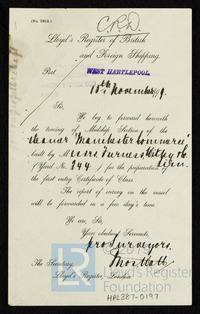 (No. 1812.)
C.R.D
Lloyd's Register of British
and Foreign Shipping.
Port WEST HARTLEPOOL.
15th November 99.
Sir,
We beg to forward herewith
the tracing of Midship Section of the
steamer "Manchester Commerce"
built by Messrs Furness Withy & Co
(Yard No. 244) for the preparation of
the first entry Certificate of Class.
The report of survey on the vessel
will be forwarded in a few day's time.
We are, Sir,
Your obedient Servants,
pro Surveyors.
The Secretary,
Lloyd's Register, London
© 2019
Lloyd's Register
Foundation
HPL387-0197